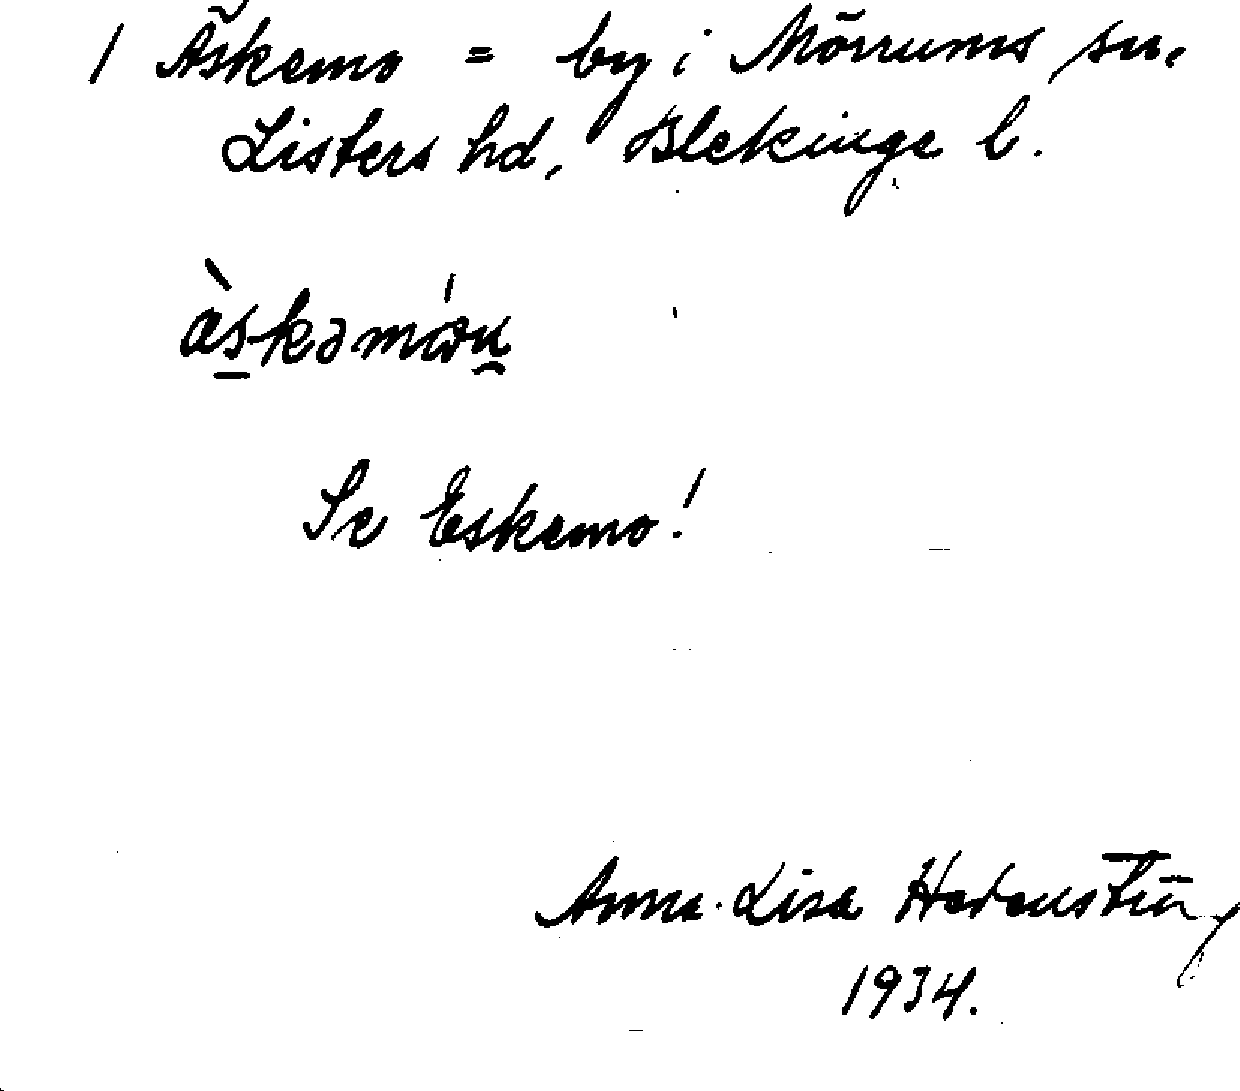 1 Äskemo = by i Mörrums sn.
Listers hd, Blekinge l.
àskəmóu
Se Eskemo!
Anna-Lisa
1934.